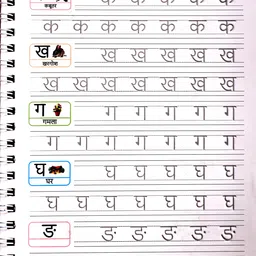 क क क क क
कबूतर
क क क क क क क
ख ख ख ख ख ख
खरगोश
ख ख ख ख ख ख ख
ग ग ग ग ग ग
गमला
ग ग ग ग ग ग ग
घ घ घ घ घ घ
घर
घ घ घ घ घ घ घ
ङ ङ ङ ङ ङ ङ